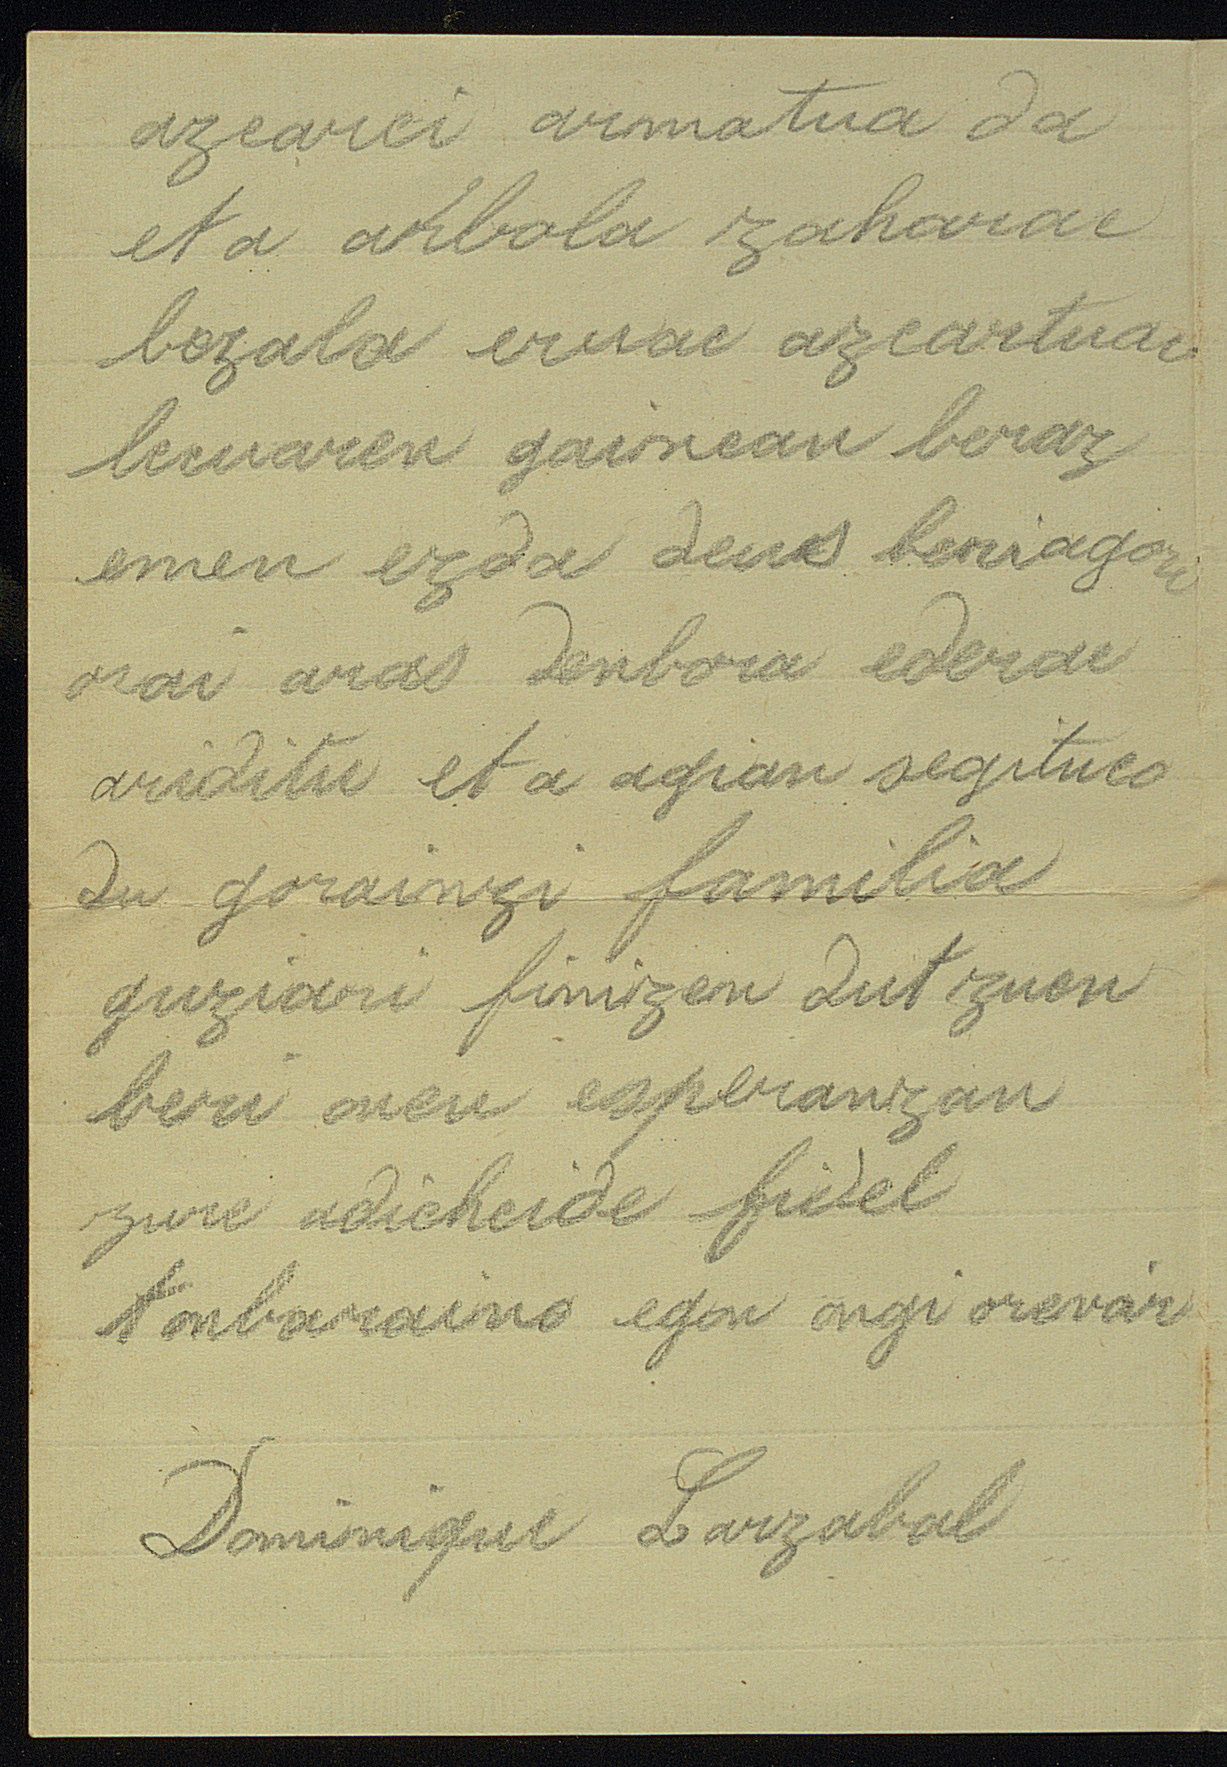 azcarci armatua da
eta arbola zaharac
bezala erruac azcartuac
lecuaren gainean beraz
emen ezda deus beriagoric
orai aras denbora ederac
ariditu eta agian segituco
du gorainzi familia
guziari finizen dut zuen
beri onen esperanzan
zure adichcide fidel
tonbaraino egon ongi orevoir
Dominique Larzabal